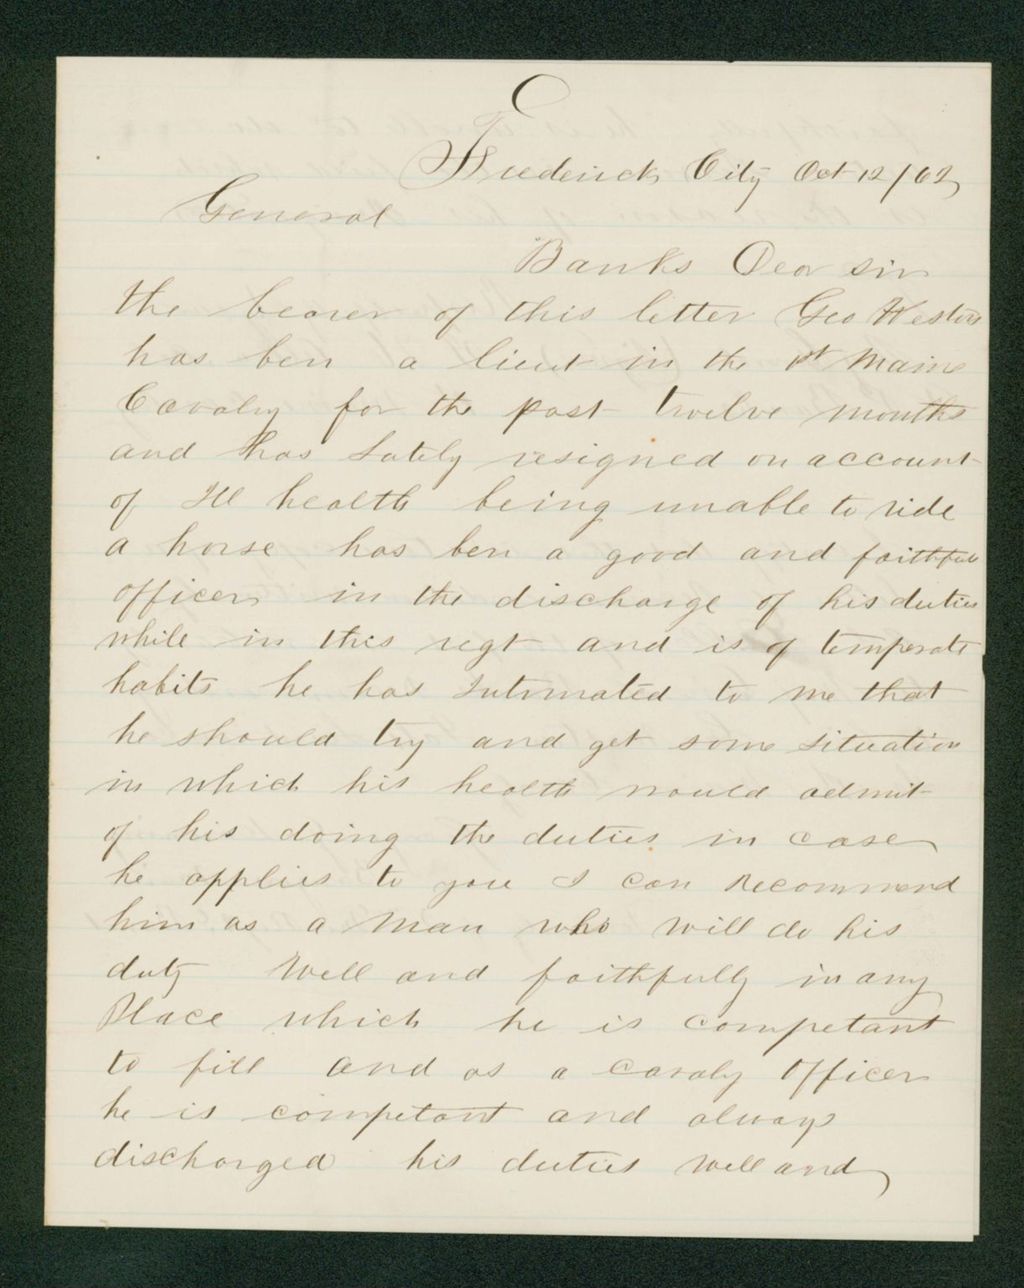 Frederick City Oct 12/62
General
Banks Dear sir
the bearer of this letter Geo Weston
has ben a lieut in the 1st Maine
Cavalry for the past twelve months
and has Lately resigned on account
of Ill health being unable to ride
a horse has ben a good and faithful
officer in the discharge of his duties
while in this regt and is of temperate
habits he has Intimated to me that
he should try and get some situation
in which his health would admit
of his doing the duties in case
he applies to you I can Recommend
him as a man who will do his
duty Well and faithfully in any
Place which he is competant
to fill and as a cavaly Officer
he is competant and always
discharged his duties Well and